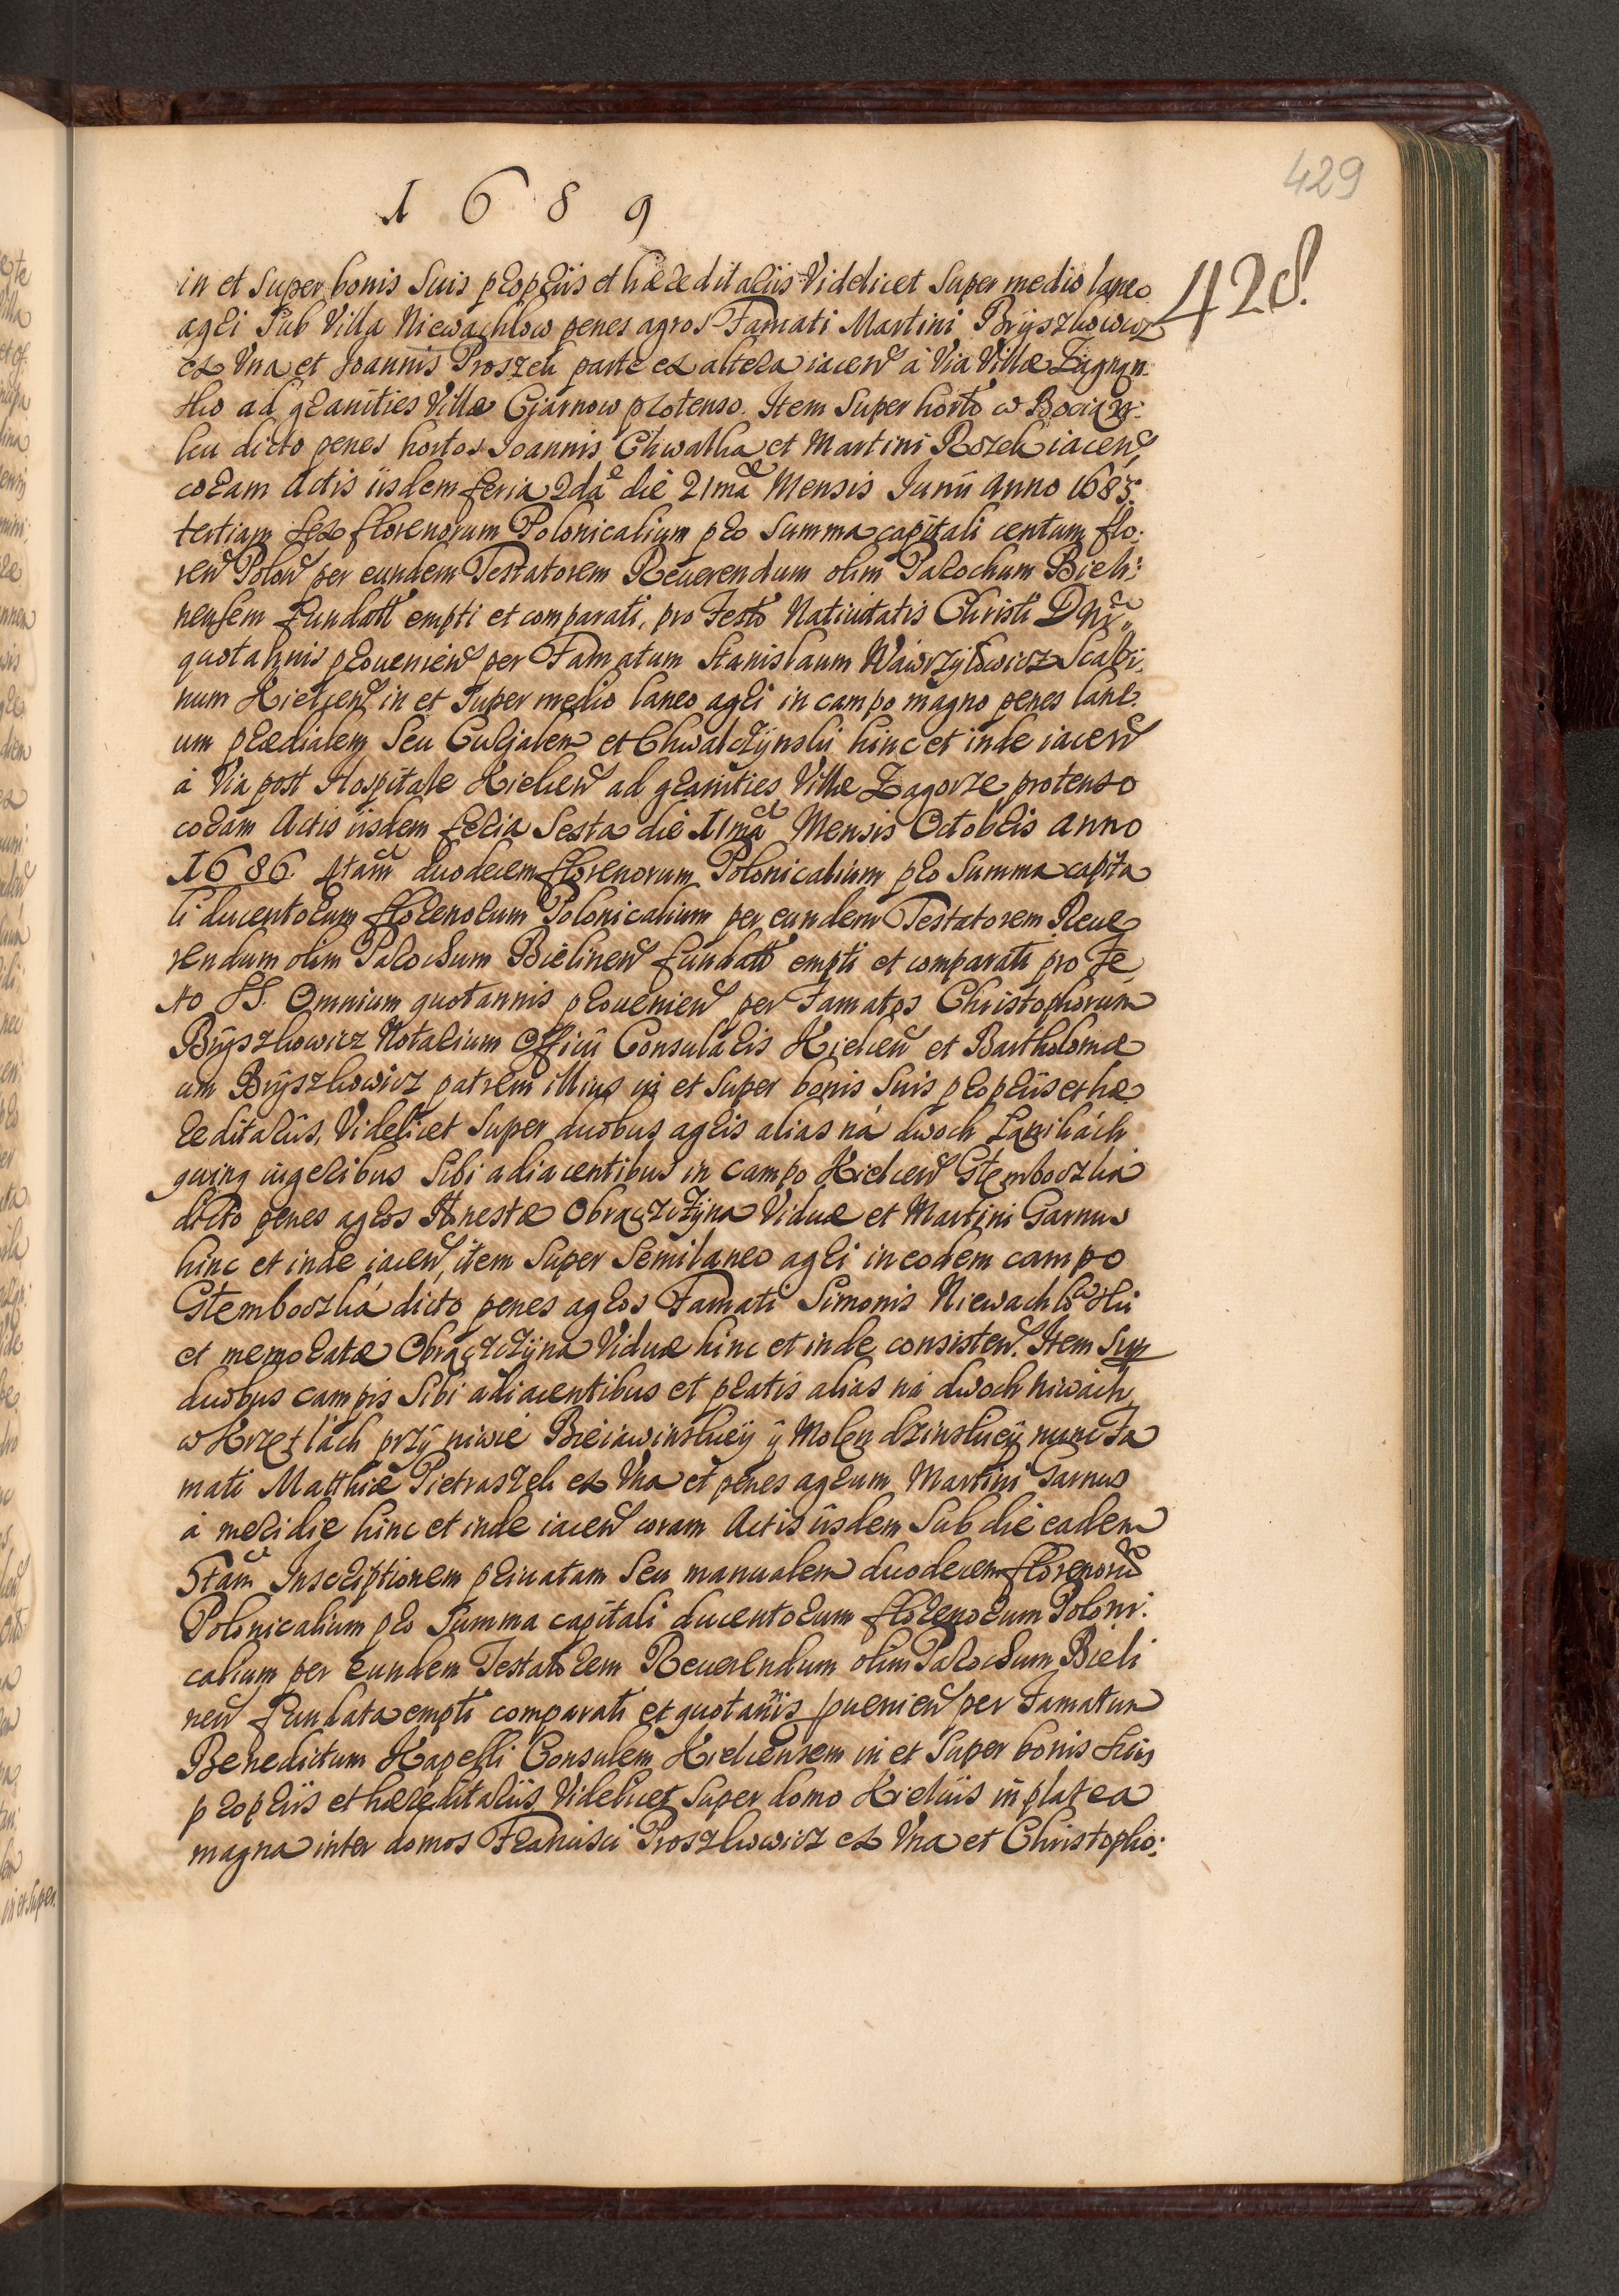 429
1689
428.
in et super bonis suis propriis et hæreditariis Videlicet super medio laneo
agri sub Villa Niewachlow penes agros Famati Martini Bryszkowicz
ex Vna et Joannis Proszek parte ex altera iacen à Via Villæ Zagnan:
sko ad granities Villæ Czarnow protenso. Item super horto w Bociąn:
ku dicto penes hortos Joannis Chwatka et Martini Rozek iacen,
coram Actis iisdem feria 2dâ die 21mâ Mensis Junii Anno 1683.
tertiam sex florenorum Polonicalium pro summa capitali centum flo:
ren Polon per eundem Testatorem Reuerendum olim Parochum Bieli:
nensem fundatt empti et comparati, pro Festo Natiuitatis Christi Dni
quotannis prouenien per Famatum Stanislaum Wawrzyłowicz Scabi:
num Kielcen in et super medio laneo agri in campo magno penes lane:
um prædialem seu Curialem et Chwalczynski hinc et inde iacen
à Via post Hospitale Kielcen ad granities Villæ Zagorze protenso
coram Actis iisdem feria Sexta die 11mâ Mensis Octobris Anno
1686 4tam duodecem florenorum Polonicalium pro summa capita
li ducentorum florenorum Polonicalium per eundem Testatorem Reue
rendum olim Parochum Bielinen fundatt empti et comparati pro Fe
sto SS. Omnium quotannis prouenien per Famatos Christophorum
Bryszkowicz Notarium Officii Consularis Kielcen et Bartholomæ
um Bryszkowicz patrem illius in et super bonis suis propriis et hæ
reditariis, Videlicet super duobus agris alias ná dwoch Łanikách
quinq iugeribus sibi adiacentibus in campo Kielcen Głemboczka
dicto penes agros Honestæ Obrączczyna Viduæ et Martini Garnus
hinc et inde iacen, item super semilaneo agri in eodem campo
Głemboczká dicto penes agros Famati Simonis Niewachlowski
et memoratæ Obrączczyna Viduæ hinc et inde consisten. Item sup
duobus campis sibi adiacentibus et pratis alias ná dwoch niwách
w Krzesłach przy niwie y nunc Fa
mati Matthiæ Pietraszek ex Vna et penes agrum Martini Garnus
à meridie hinc et inde iacen coram Actis iisdem sub die eadem
5tam Inscriptionem priuatam seu manualem duodecem florenorū
Polonicalium pro summa capitali ducentorum florenorum Poloni:
calium per eundem Testatorem Reuerendum olim Parochum Bieli
nen fundata empti comparati et quotannis puenien per Famatum
Benedictum Kapelli Consulem Kielcensem in et super bonis suis
propriis et hæreditariis Videlicet super domo Kielciis in platea
magna inter domos Francisci Proszkowicz ex Vna et Christopho: